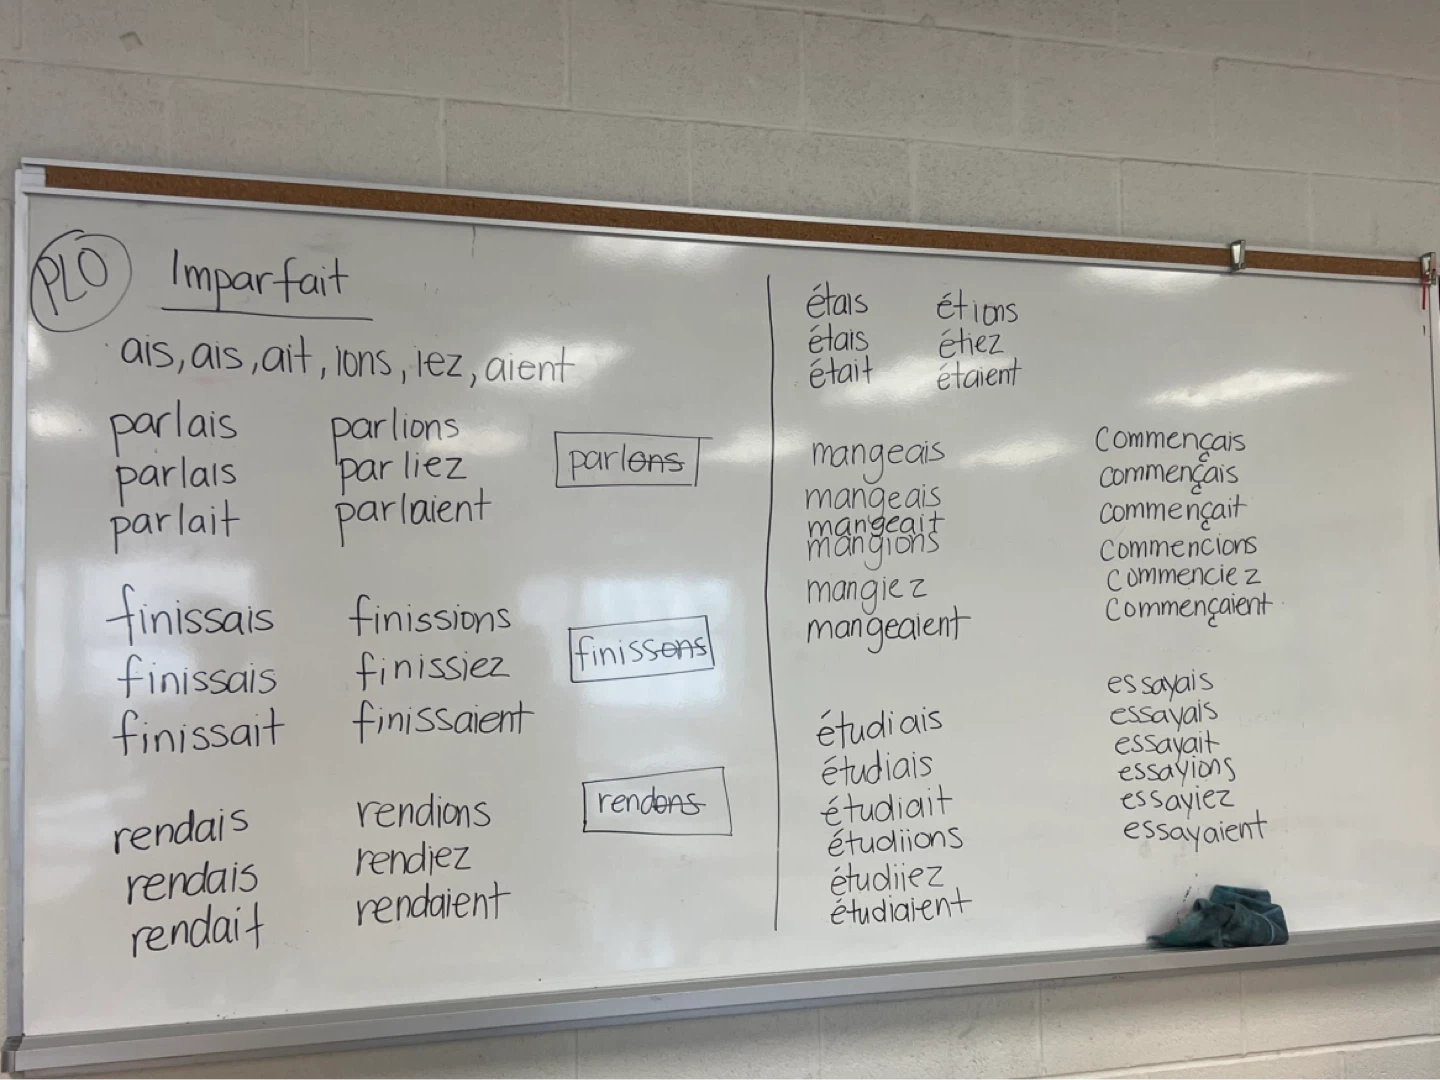 PLO
Imparfait
ais, ais, ait, ions, iez, aient
parlais
parlais
parlait
parlions
parliez
parlaient
parlons
finissais
finissais
finissait
finissions
finissiez
finissaient
finissons
rendais
rendais
rendait
rendions
rendiez
rendaient
rendons
étais
étais
était
étions
étiez
étaient
mangeais
mangeais
mangeait
mangions
mangiez
mangeaient
commençais
commençais
commençait
commencions
commenciez
commençaient
étudiais
étudiais
étudiait
étudiions
étudiiez
étudiaient
essayais
essayais
essayait
essayions
essayiez
essayaient